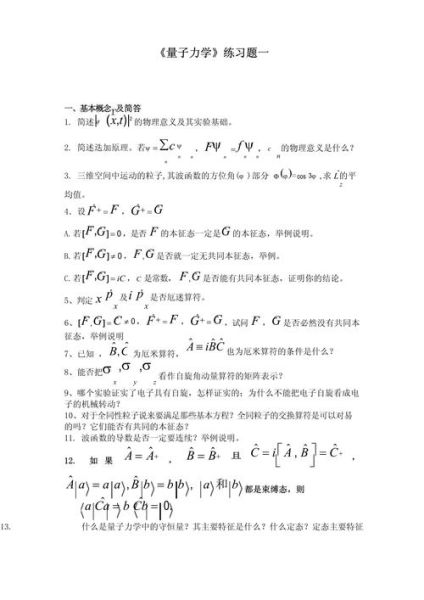 《量子力学》练习题一
一、基本概念及简答
1. 简述|ψ(x,t)|²的物理意义及其实验基础。
2. 简述迭加原理。若ψ=∑cₙψₙ，F̂ψₙ=fₙψₙ，cₙ的物理意义是什么？
3. 三维空间中运动的粒子,其波函数的方位角(φ)部分 Φ(φ)=cos 3φ,求 l̂z的平
均值。
4. 设 F̂⁺=F̂，Ĝ⁺=Ĝ
A.若[F̂,Ĝ]=0，是否 F̂ 的本征态一定是Ĝ 的本征态，举例说明。
B.若[F̂,Ĝ]≠0，F̂,Ĝ 是否就一定无共同本征态，举例。
C.若[F̂,Ĝ]=iC，C 是常数， F̂,Ĝ 是否能有共同本征态，证明你的结论。
5、判定 x p̂x 及i p̂x 是否厄迷算符。
6、[F̂,Ĝ]=C≠0，F̂⁺=F̂，Ĝ⁺=Ĝ，试问 F̂，Ĝ 是否必然没有共同本
征态，举例说明
7、已知，B̂,Ĉ 为厄米算符， Â=iB̂Ĉ 也为厄米算符的条件是什么？
8、能否把σ̂x,σ̂y,σ̂z看作自旋角动量算符的矩阵表示？
9、哪个实验证实了电子具有自旋，怎样证实的；为什么不能把电子自旋看成电
子的机械转动？
10、对于全同性粒子说来要满足那些基本方程？全同粒子的交换算符是可以对易
的吗？它们能否有共同的本征态？
11. 波函数的导数是否一定要连续？举例说明。
12. 如果 Â=Â⁺ ，B̂=B̂⁺ 且 Ĉ=i[Â,B̂]=Ĉ⁺ ，
Â|a⟩=a|a⟩,B̂|b⟩=b|b⟩，|a⟩和|b⟩都是束缚态，则
⟨a|Ĉ|a⟩=⟨b|Ĉ|b⟩=0
13. 什么是量子力学中的守恒量？其主要特征是什么？什么定态？定态主要特征